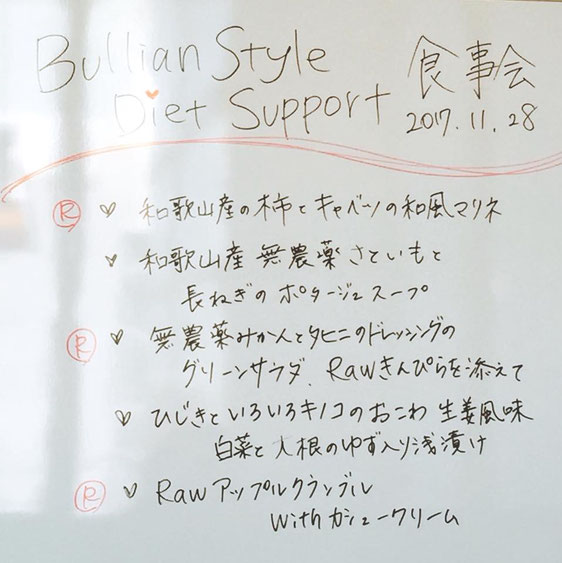 Bullian Style 食事会
Diet Support 2017.11.28
Ⓡ ♡ 和歌山産の柿とキャベツの和風マリネ
♡ 和歌山産 無農薬 さといもと
長ねぎの ポタージュスープ
Ⓡ ♡ 無農薬みかんとタヒニのドレッシングの
グリーンサラダ、Rawきんぴらを添えて
♡ ひじきといろいろキノコのおこわ 生姜風味
白菜と大根のゆず入り浅漬け
Ⓡ ♡ Rawアップルクランブル
with カシュークリーム